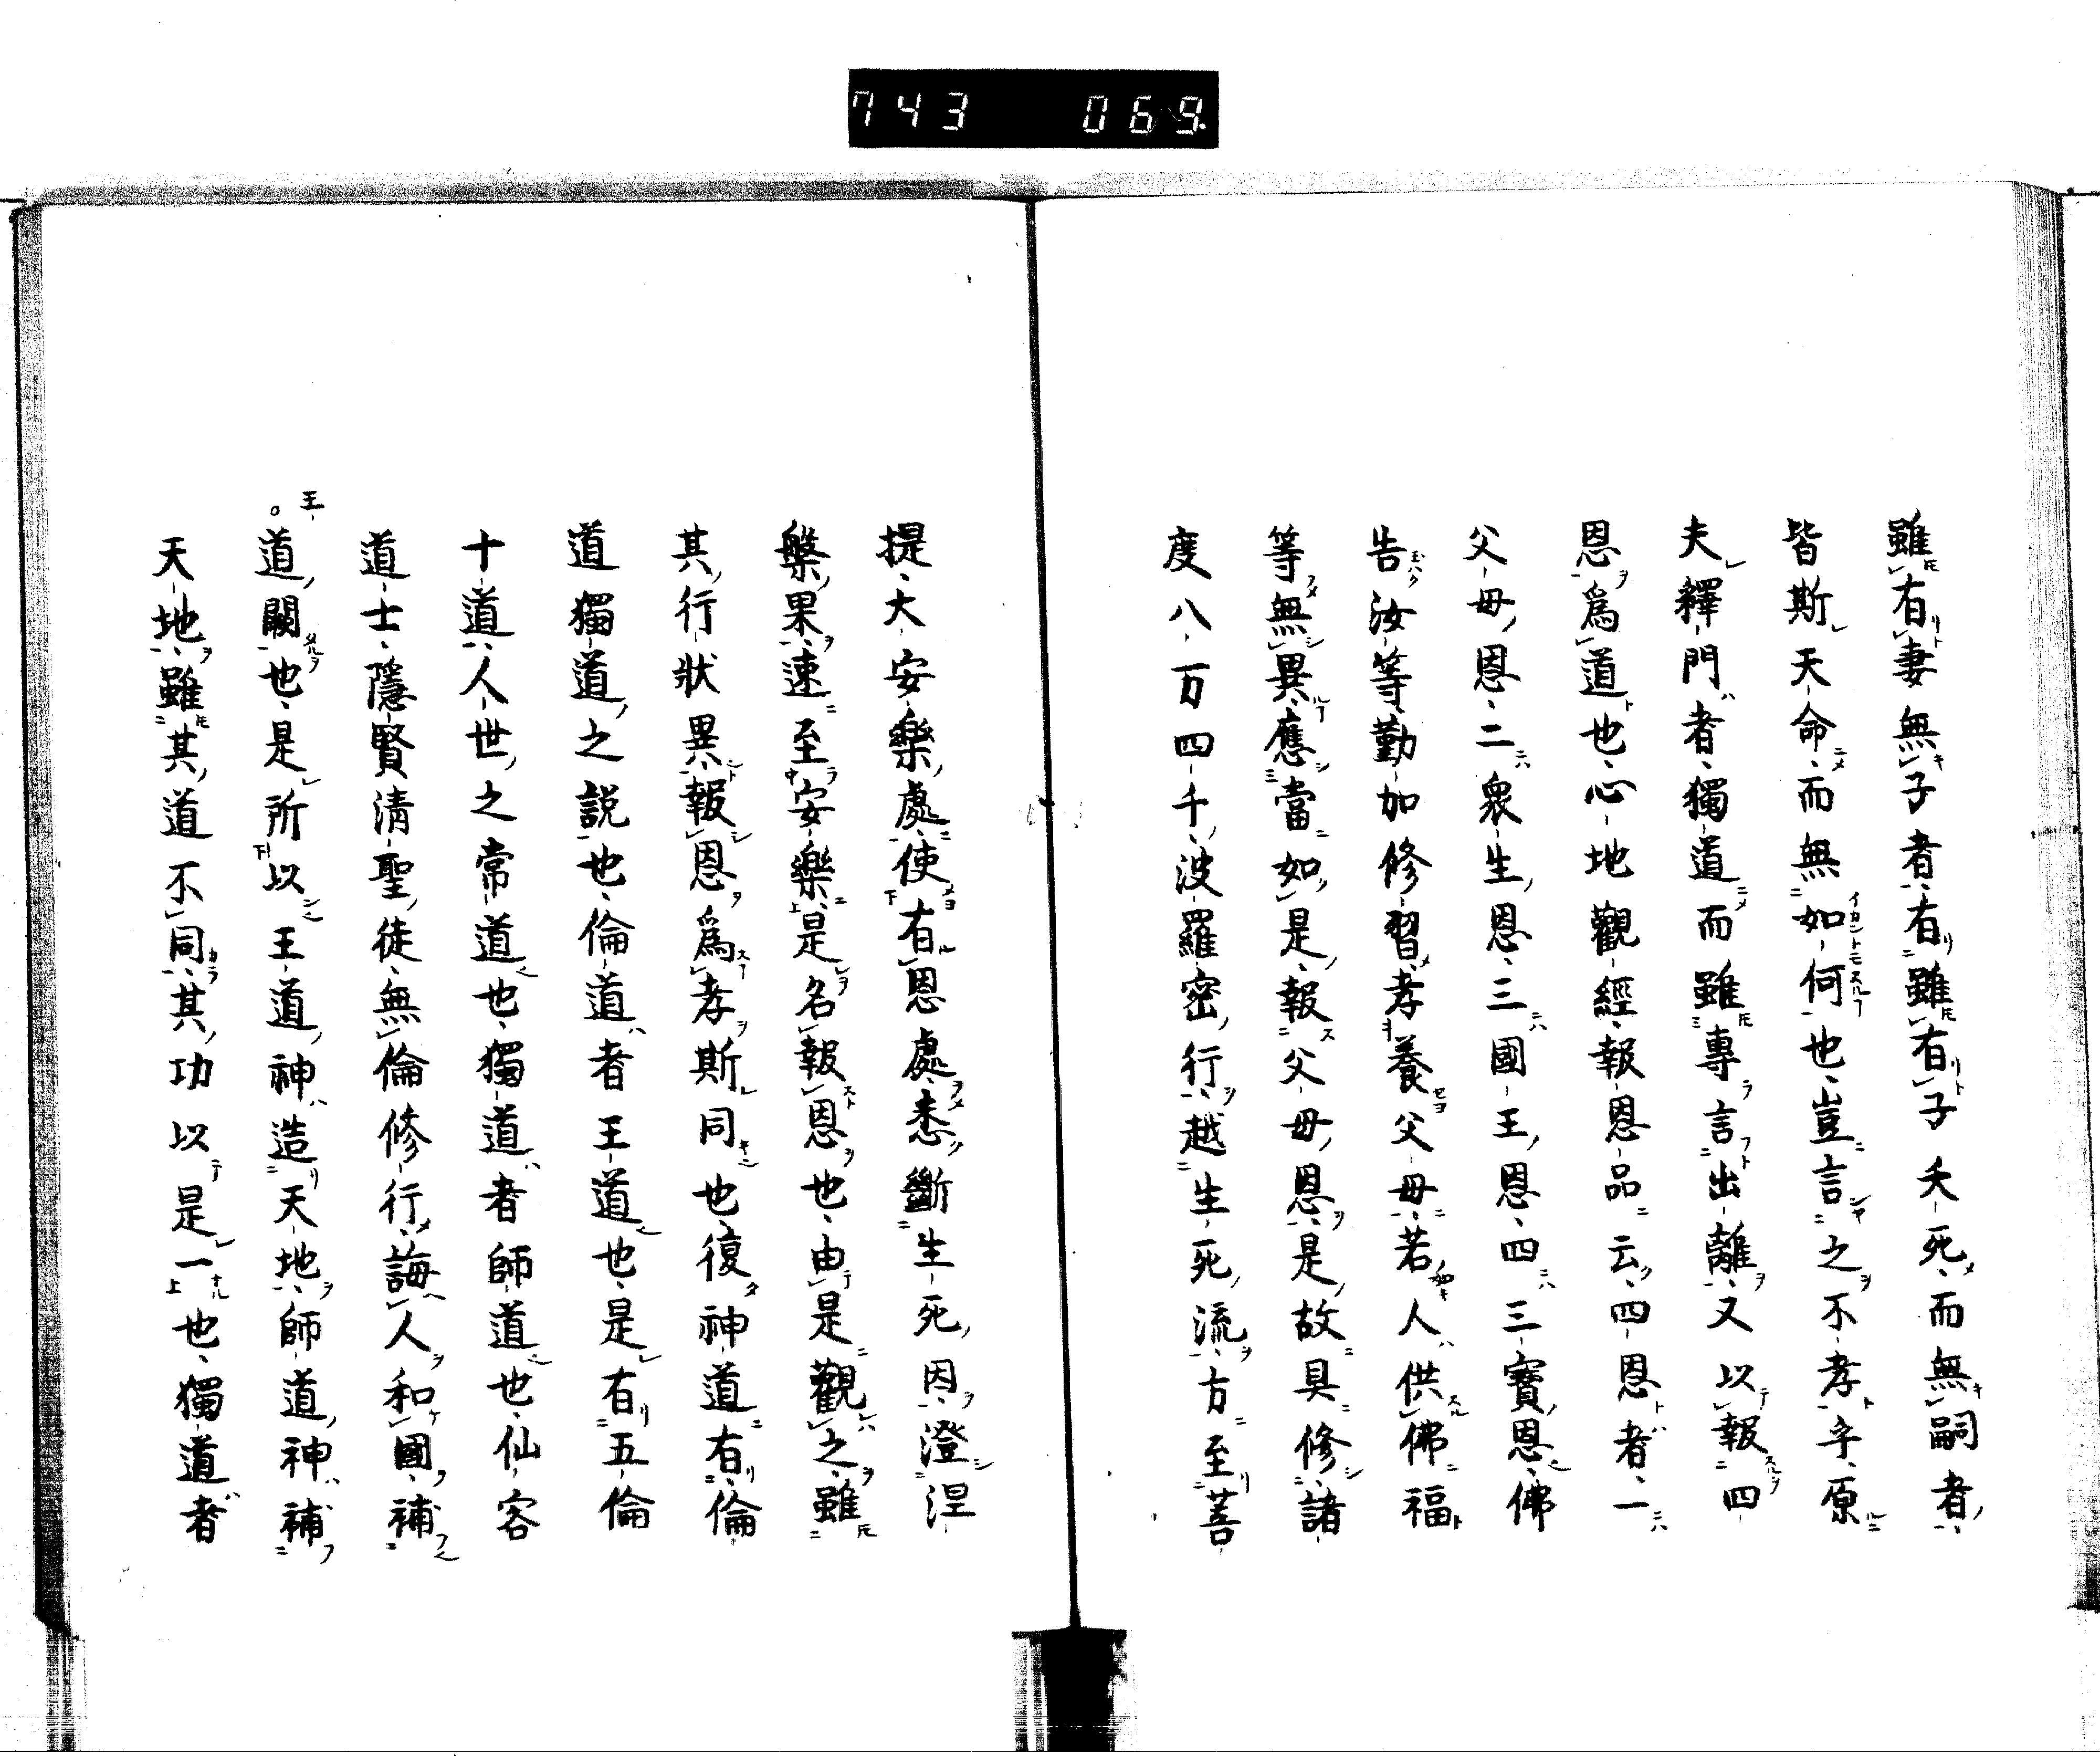 743 069
雖有妻無子者有雖有子夭死而無嗣者
皆斯天命而無如何也豈言之不孝乎原
夫釋門者獨道而雖專言出離又以報四
恩爲道也心地觀經報恩品云四恩者一
父母恩二衆生恩三國王恩四三寶恩佛
告汝等勤加修習孝養父母若人供佛福
等無異應當如是報父母恩是故具修諸
度八万四千波羅密行越生死流方至菩
提大安樂處使有恩處悉斷生死因澄涅
槃果速至安樂是名報恩也由是觀之雖
其行狀異報恩爲孝斯同也復神道有倫
道獨道之説也倫道者王道也是有五倫
十道人世之常道也獨道者師道也仙客
道士隱賢清聖徒無倫修行誨人和國補
王道闕也是所以王道神造天地師道神補
天地雖其道不同其功以是一也獨道者